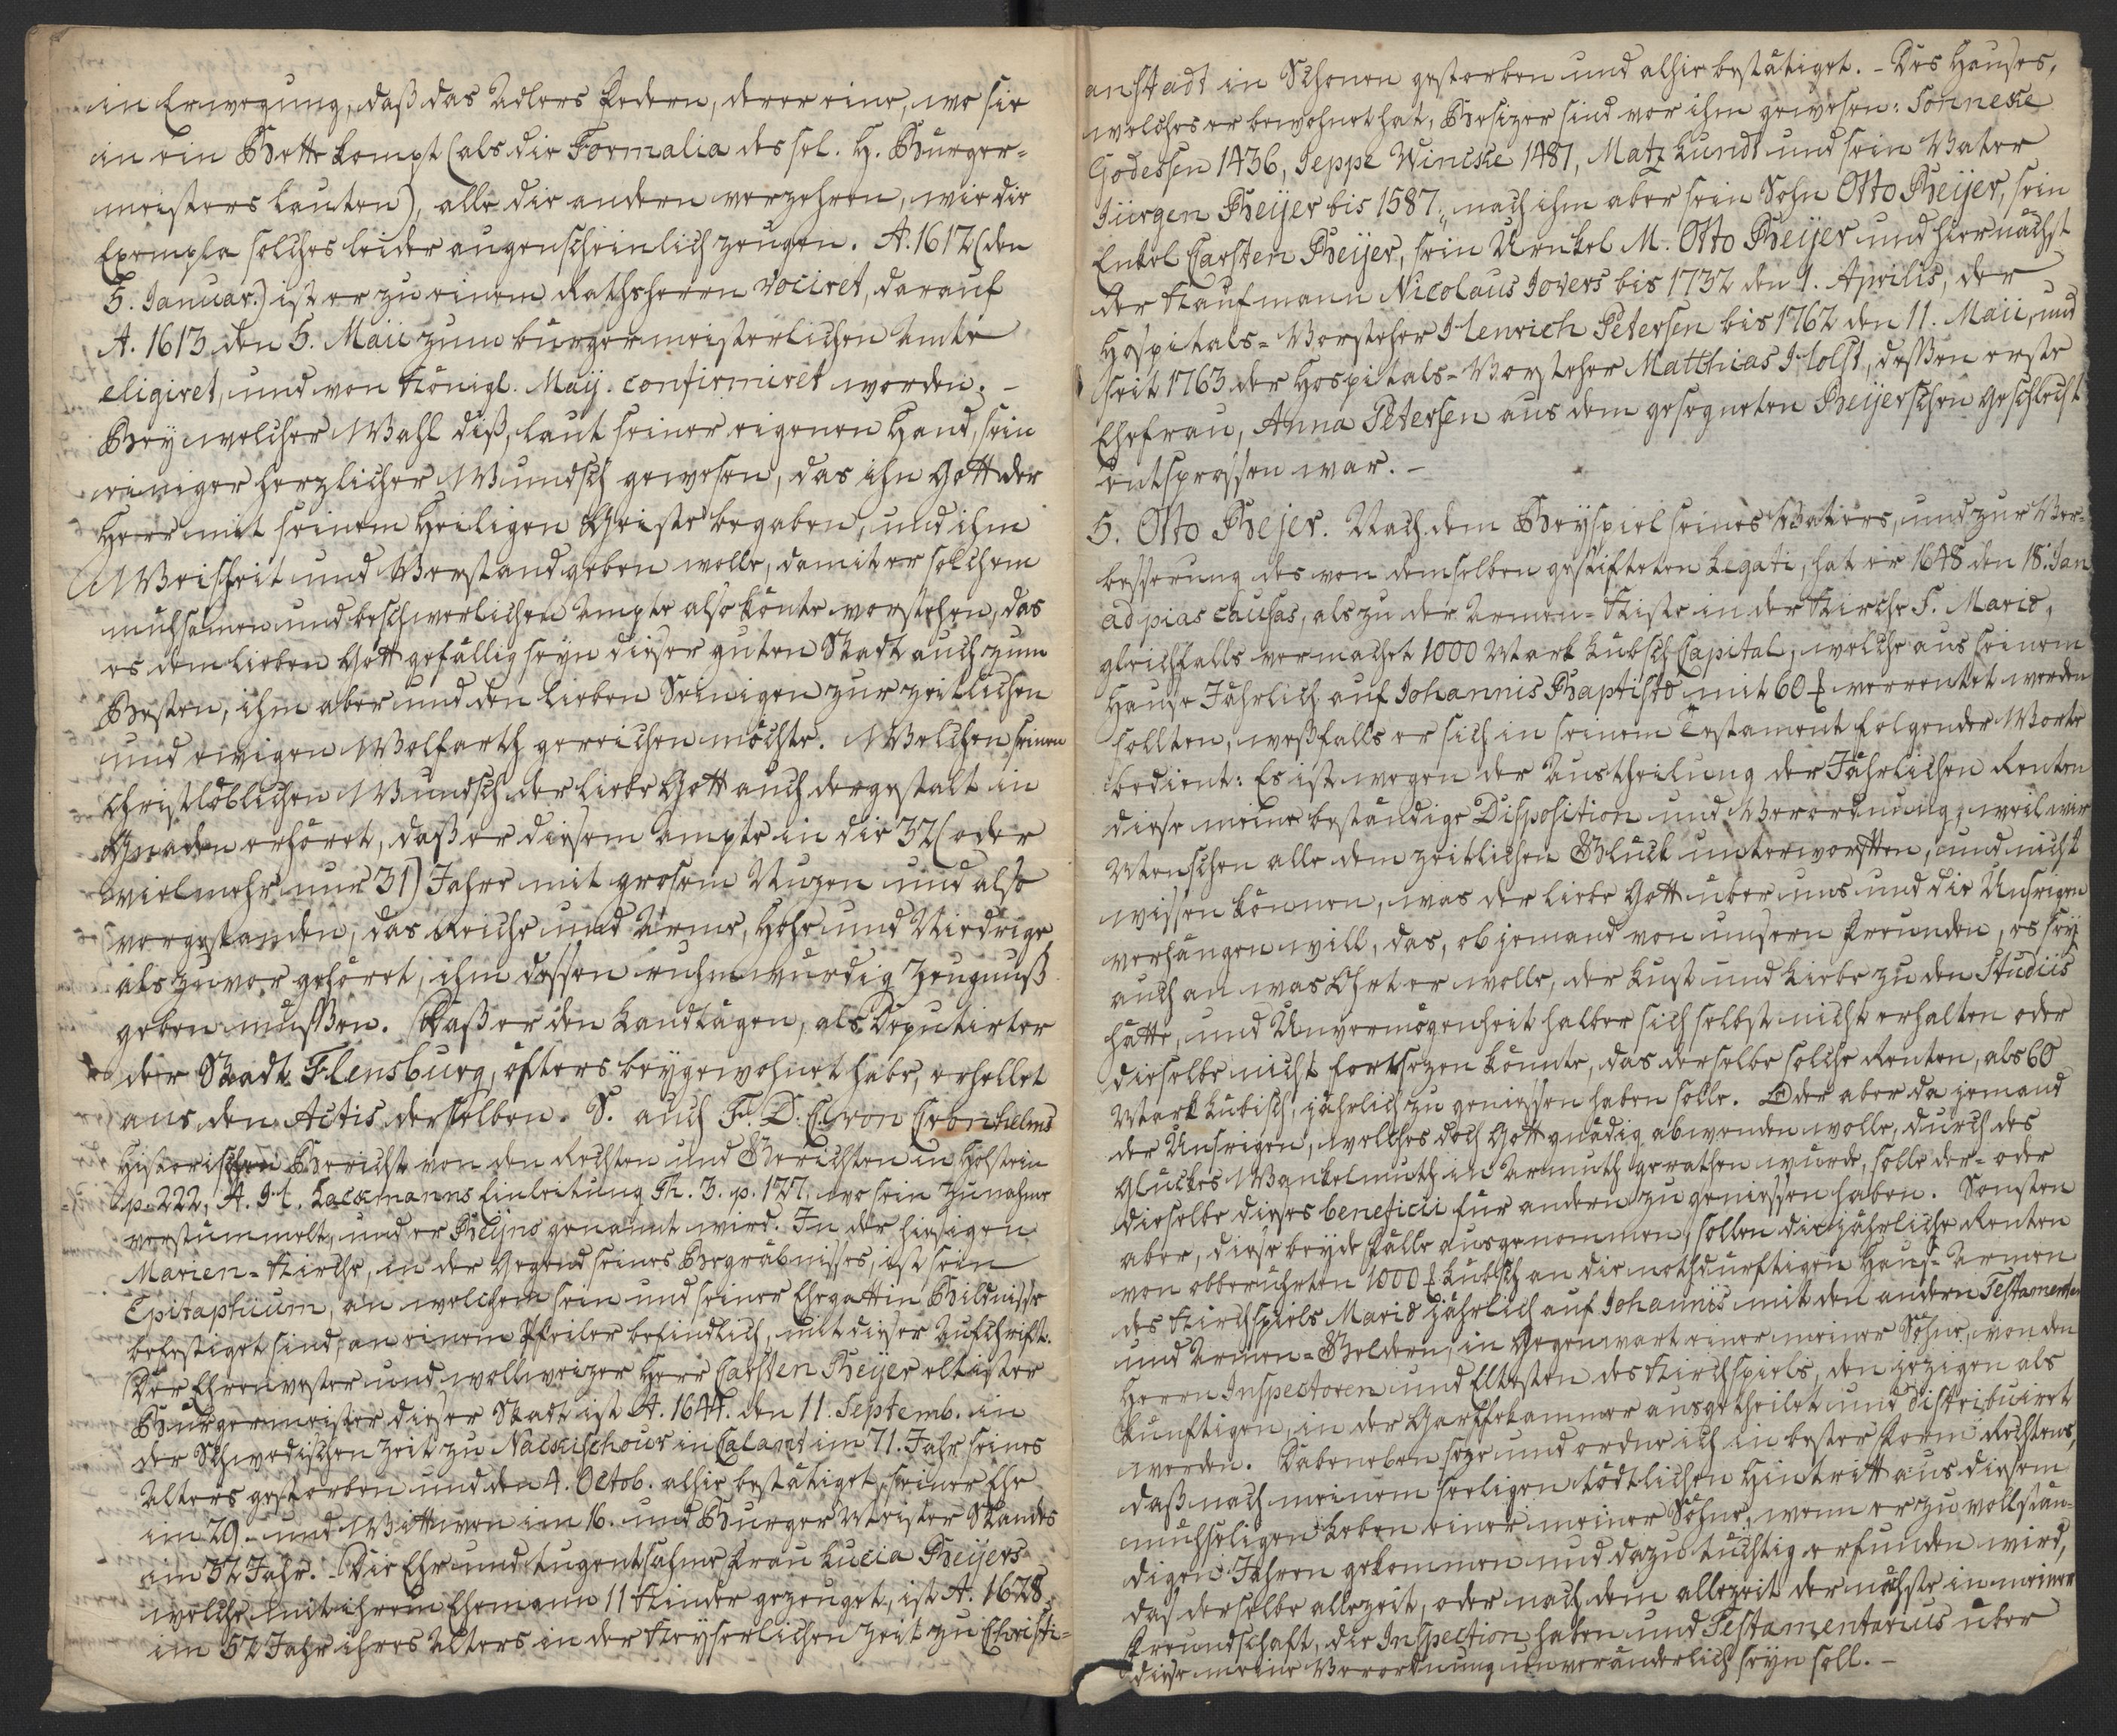 in Erwegung, daß das Adlers Federn, derer eine, wo sie
in ein Bette kompt (als die Formalia des sel. H. Burger-
meisters lauten), alle die andern verzehren, wie die
Exempla solches leider augenscheinlich zeugen. A. 1612 (den
5. Januar.) ist er zu einem Rathsherrn vociret, darauf
A. 1613 den 5. Maii zum burgermeisterlichen Amte
eligiret, und von Königl. Maij. confirmiret worden. -
Bey welcher Wahl diß, laut seiner eigenen Hand, sein
einiger herzlicher Wundsch gewesen, das ihn Gott der
Herr mit seinem Heiligen Geiste begaben, und ihm
Weisheit und Verstand geben wolle, damit er solchem
muhsamen und beschwerlichen Ampte also könte vorstehen, das
es dem lieben Gott gefällig seyn dieser guten Stadt auch zum
Besten, ihm aber und den lieben Seinigen zur zeitlichen
und ewigen Wolfarth gereichen möchte. Welchen seinen
Christlöblichen Wundsch der liebe Gott auch dergestalt in
Gnaden erhöret, daß er diesem Ampte in die 32 (oder
vielmehr nur 31) Jahre mit grosem Nuzen und also
vorgestanden, das Reiche und Arme, Hohe und Niedrige
als zuvor gehöret, ihm dessen ruhmwurdig Zeugnuß
geben mussen. Daß er den Landtägen, als Deputirter
der Stadt Flensburg, öfters beygewohnet habe, erhellet
aus den Actis derselben. S. auch F. D. C. von Cronhelms
Historischen Bericht von den Rechten und Gerichten in Holstein
p. 222, A. H. Lackmanns Einleitung Th. 3. p. 127, wo sein Zunahme
verstummelt, und er Beijns genannt wird. In der hiesigen
Marien-Kirche, in der Gegend seines Begräbnisses, ist sein
Epitaphium, an welchem sein und seiner Ehegattin Bildnisse
befestiget sind, an einem Pfeiler befindlich, mit dieser Aufschrift.
Der Ehrenvester und wollweizer Herr Carsten Beijer eltister
Burgermeister dieser Stadt ist A. 1644. den 11. Septemb. in
der Schwedischen Zeit zu Nackischour in Calant im 71. Jahr seines
Alters gestorben und den 4. Octob. alhie bestätiget, seiner Ehe
im 29- und Wittwen im 16. und Burger Meister Standes
im 32 Jahr. - Die Ehr und tugentsahme Frau Lucia Beijers
welche mit ihrem Ehemann 11 Kinder gezeuget, ist A. 1628
im 52 Jahr ihres Alters in der Keyserlichen Zeit zu Christi-
anstadt in Schonen gestorben und alhie bestätiget. - Des Hauses,
welches er bewohnet hat, Besizer sind vor ihm gewesen: Sonneke
Godessen 1436, Jeppe Wincke 1481, Matz Lundt und sein Vater
Jürgen Beijer bis 1587, nach ihm aber sein Sohn Otto Beijer, sein
Enkel Carsten Beijer, sein Urenkel M. Otto Beijer und hiernächst
der Kaufmann Nicolaus Jovers bis 1732 den 1. Aprilis, der
Hospitals-Vorsteher Henrich Petersen bis 1762 den 11. Maii, und
seit 1763 der Hospitals-Vorsteher Matthias Holst, deßen erste
Ehefrau, Anna Petersen aus dem gesegneten Beijerschen Geschlecht
entsprossen war. -
5. Otto Bejer. Nach dem Beyspiel seines Vaters, und zur Ver-
besserung des von demselben gestifteten Legati, hat er 1648 den 18. Jan
ad pias causas, als zu der Armen-Kiste in der Kirche S. Mariæ,
gleichfalls vermachet 1000 Mark Lubsch Capital, welche aus seinem
Hause Jährlich auf Johannis Baptistæ mit 60 ₰ verrentet werden
sollten, weßfalls er sich in seinem Testament folgender Worte
bedient: Es ist wegen der Austheilung der Jährlichen Renten
diese meine beständige Disposition und Verordnung, weil wir
Menschen alle dem zeitlichen Gluck unterworffen, und nicht
wissen können, was der liebe Gott uber uns und die Unsrigen
verhängen will, das, ob jemand von unsern Freunden, es sey
auch an was Ohrt er wolle, der Lust und Liebe zu den Studiis
hätte, und Unvermögenheit halber sich selbst nicht erhalten oder
dieselbe nicht fortsezen könnte, das derselbe solche Renten, als 60
Mark Lubisch, jährlich zu geniessen haben solle. Oder aber da jemand
der Unsrigen, welches doch Gott gnädig abwenden wolle, durch des
Gluckes Wankelmuth in Armuth gerathen wurde, solle der- oder
dieselbe dieses beneficii fur andern zu geniessen haben. Sonsten
aber, diese beyde Fälle ausgenommen, sollen die jährliche Renten
von obberuhrten 1000 ₰ Lubsch an die nothdurftigen Haus-Armen
des Kirchspiels Mariæ jährlich auf Johannis mit den andern Testamenten
und Armen-Geldern, in Gegenwart einer meiner Söhne, von den
Herrn Inspectoren und Eltesten des Kirchspiels, den jezigen als
kunftigen, in der Garffekammer ausgetheilet und distribuiret
werden. Daneneben seze und ordne ich in bester Form Rechtens,
daß nach meinem seeligen tödtlichen Hintritt aus diesem
muhseligen Leben einer meiner Söhne, wenn er zu vollstän-
digen Jahren gekommen und dazu tuchtig erfunden wird,
das derselbe allezeit, oder nach dem allezeit der nächste in meiner
Freundschaft, die Inspection haben und Testamentarius uber
diese meine Verordnung unveränderlich seyn soll. -